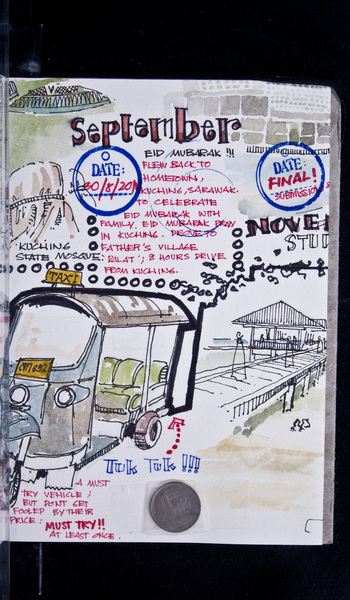 September
DATE:
30/8/2011
EID MUBARAK !!!
FLEW BACK TO
HOMETOWN,
KUCHING, SARAWAK.
TO CELEBRATE
EID MUBARAK WITH
FAMILY. EID MUBARAK PRAY
IN KUCHING.
FATHER'S VILLAGE
8 HOURS DRIVE
FROM KUCHING.
DATE:
FINAL!
SUBMISSION
NOVE
STU
KUCHING
STATE MOSQUE
TAXI
Tuk Tuk !!!
A MUST
TRY VEHICLE;
BUT DON'T GET
FOOLED BY THEIR
PRICE.
MUST TRY!!
AT LEAST ONCE.